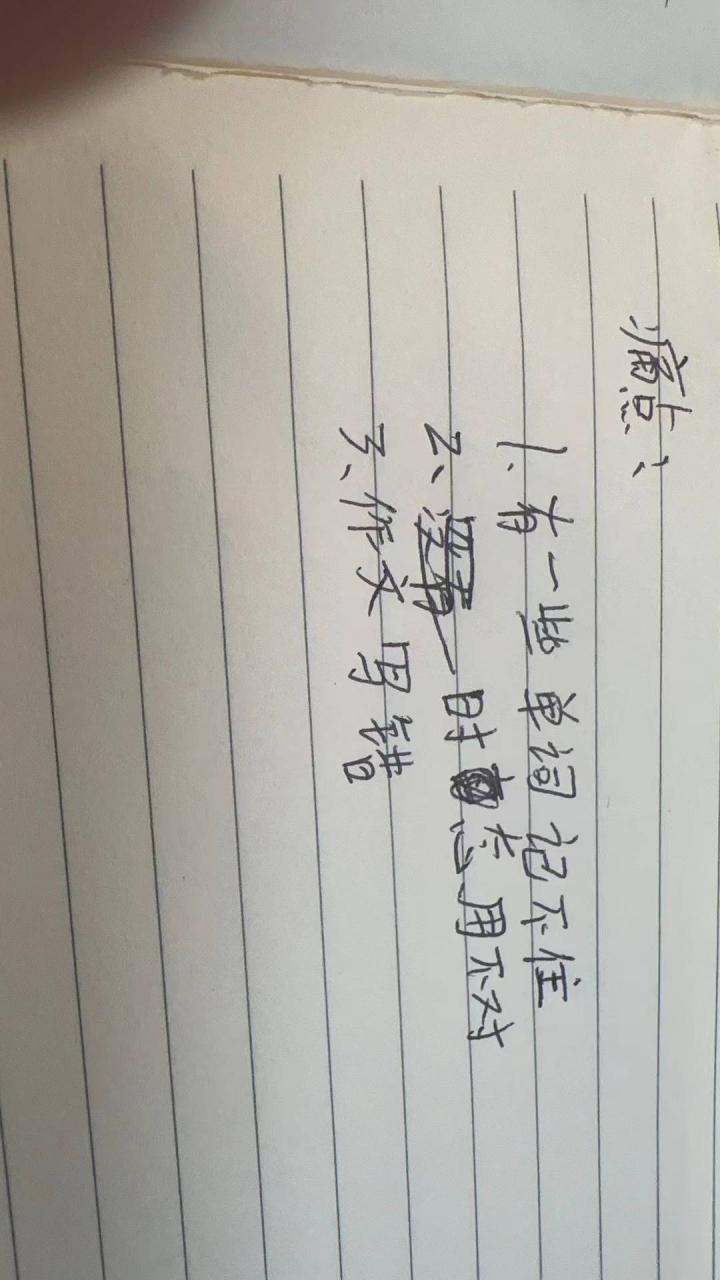 痛点：
1、有一些单词记不住
2、时态用不对
3、作文写错